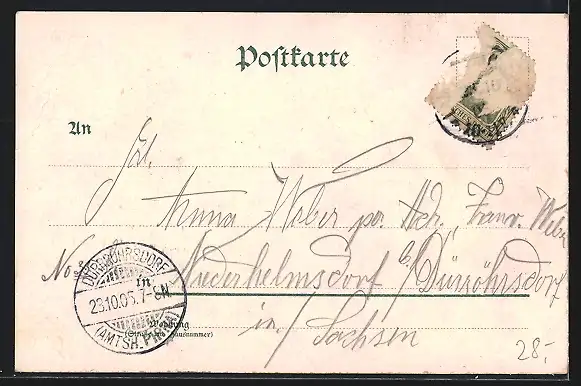 Postkarte
An
Frl.
Anna Weber per Adr. Franz. Weber
No 8
Niederhelmsdorf b/ Dürröhrsdorf
in / Sachsen
DÜRRRÖHRSDORF
23.10.05.7-8N.
(AMTSH. PIRNA)
in
Wohnung
(Straße und Hausnummer)
28.-